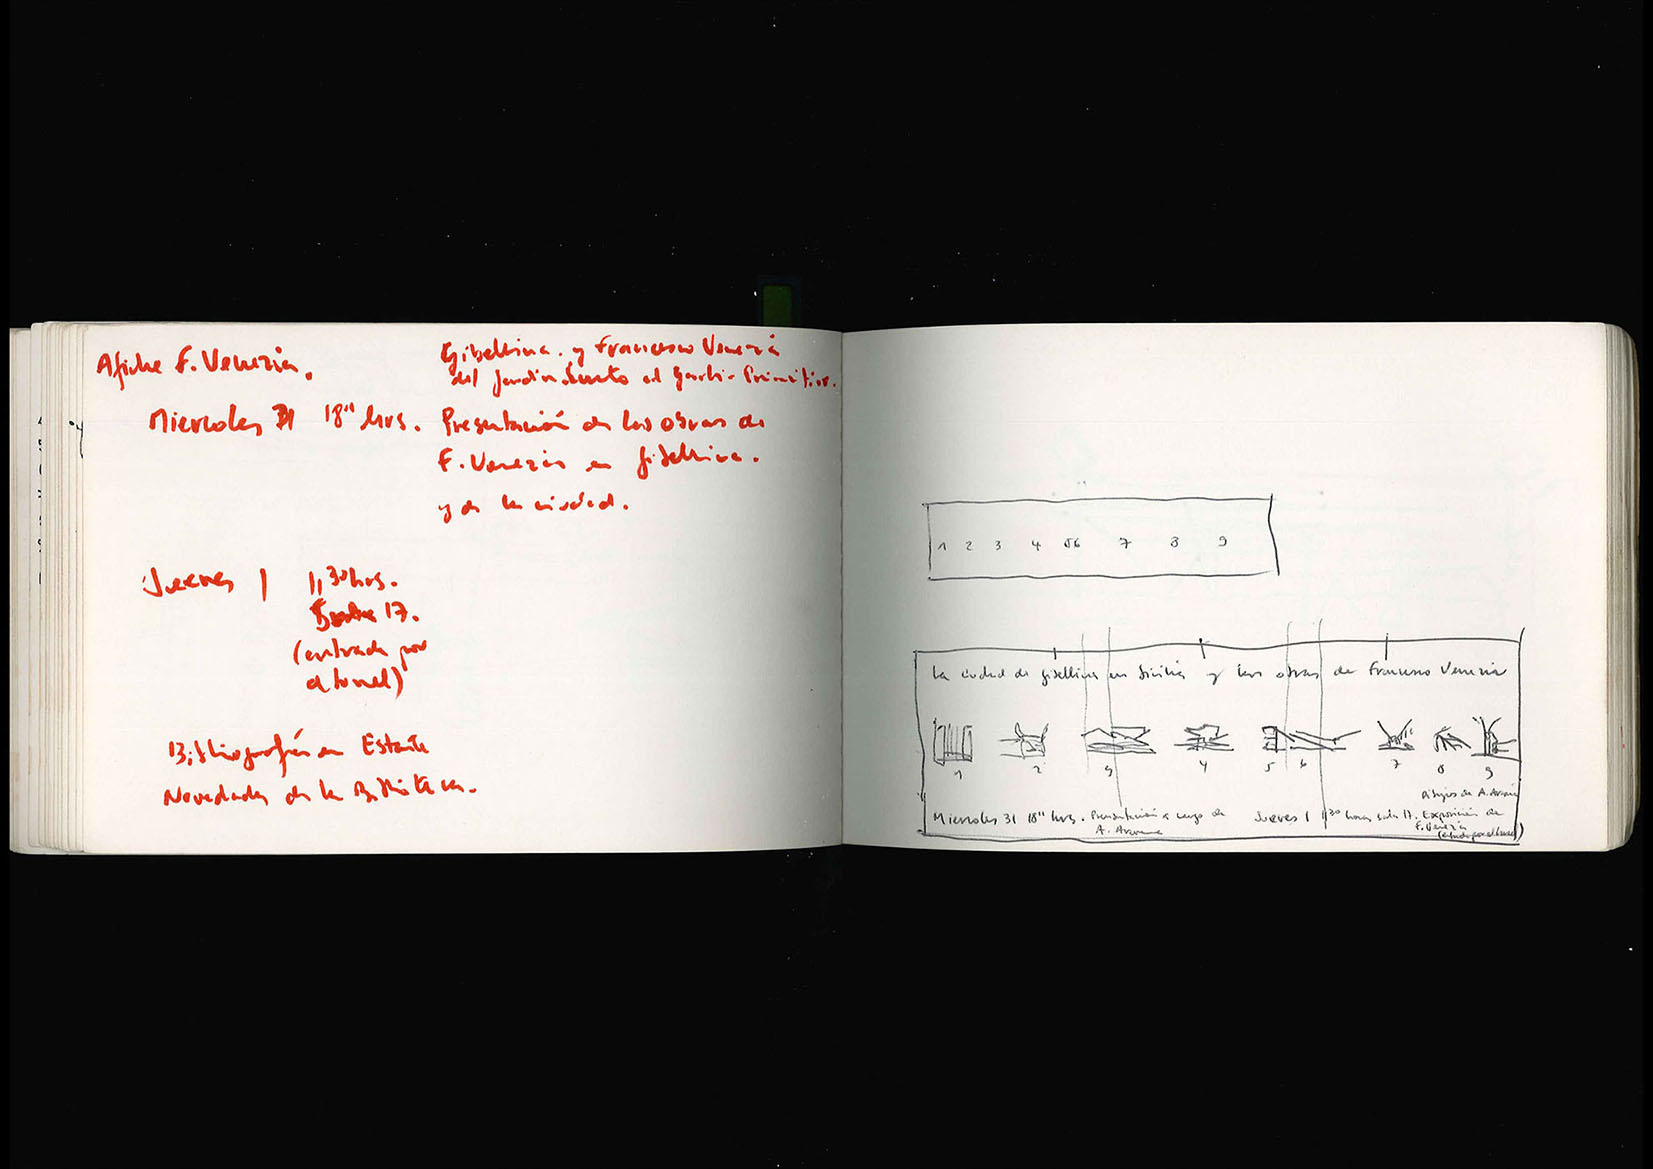 Afiche F. Venezia.
Gibellina. y Francesco Venezia
del Jardin al Jardin Primitivo.
Miercoles 31 18'' hrs. Presentación de las obras de
F. Venezia en Gibellina.
y de la ciudad.
Jueves 1 1,30 hrs.
17.
(entrada por
el tunel)
Bibliografía en Estante
Novedades de la Biblioteca.
1 2 3 4 5 6 7 8 9
La ciudad de Gibellina en Sicilia y las obras de Francesco Venezia
1 2 3 4 5 6 7 8 9
Dibujos de A.
Miercoles 31 18'' hrs. Presentación a cargo de
A.
Jueves 1 1 30 horas sala 17. Exposición de
F. Venezia